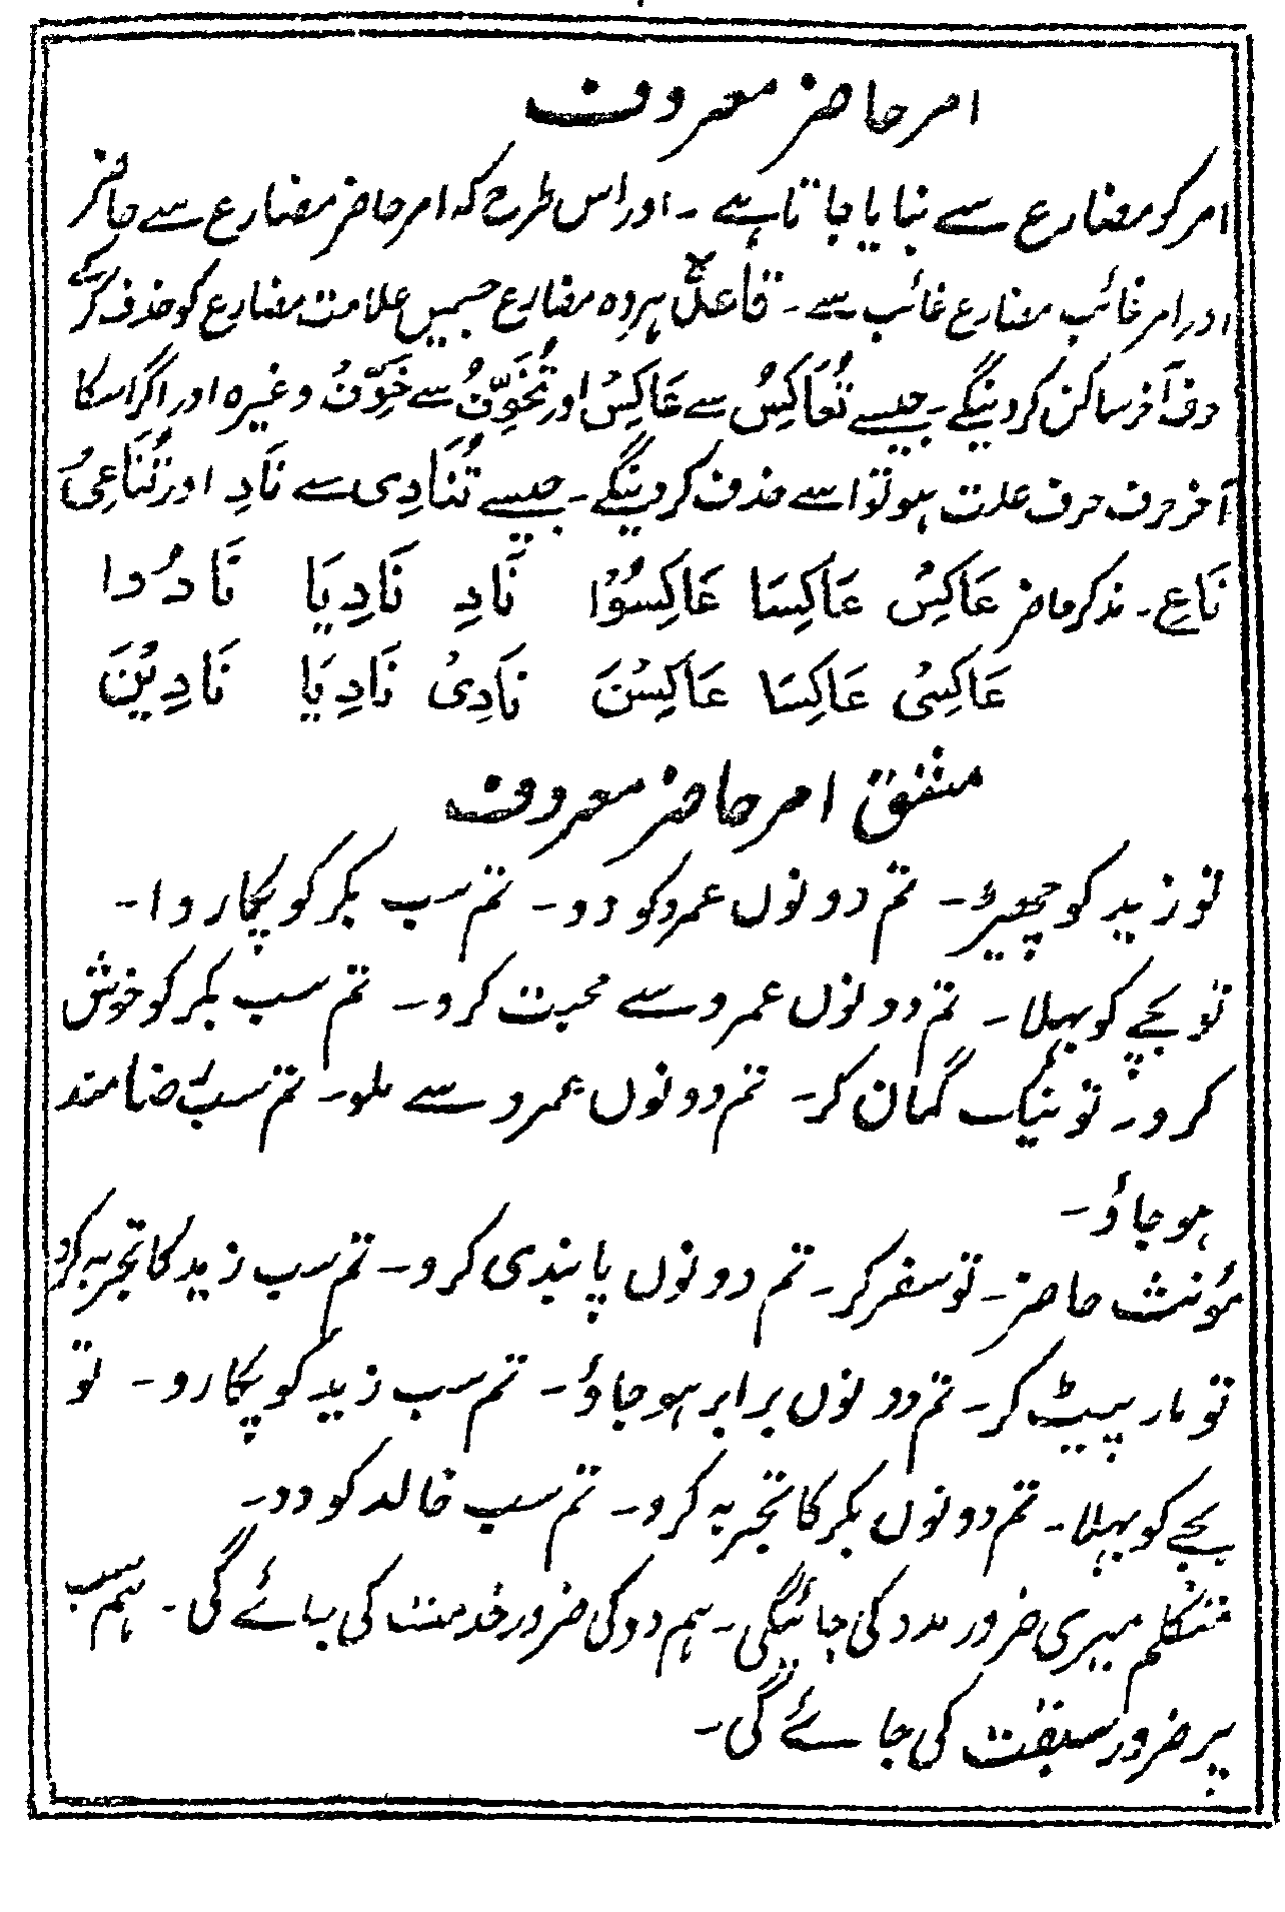 امر حاضر معروف
امر کو مضارع سے بنایا جاتا ہے ۔ اور اس طرح کہ امر حاضر مضارع سے حاضر
اور امر غائب مضارع غائب سے ۔ قاعدہ ہر وہ مضارع جسمیں علامت مضارع کو حذف کرکے
حرف آخر ساکن کردینگے ۔ جیسے تُعَاکِسُ سے عَاکِسْ اور تُخَوِّنُ سے خَوِّنْ وغیرہ اور اگر اسکا
آخر حرف حرف علت ہو تو اسے حذف کردینگے ۔ جیسے تُنَادِی سے نَادِ اور تُنَاعِیْ
نَاعِ ۔ مذکر حاضر عَاکِسْ عَاکِسَا عَاکِسُوْا نَادِ نَادِیَا نَادُوا
عَاکِسِیْ عَاکِسَا عَاکِسْنَ نَادِیْ نَادِیَا نَادِیْنَ
مشق امر حاضر معروف
تو زید کو چھیڑ ۔ تم دونوں عمرو کو دو ۔ تم سب بکر کو پکارو ا ۔
تو بچے کو بہلا ۔ تم دونوں عمرو سے محبت کرو ۔ تم سب بکر کو خوش
کرو ۔ تو نیک گمان کر ۔ تم دونوں عمرو سے ملو ۔ تم سب رضامند
ہوجاؤ ۔
مؤنث حاضر ۔ تو سفر کر ۔ تم دونوں پابندی کرو ۔ تم سب زید کا تجربہ کرو
تو مار پیٹ کر ۔ تم دونوں برابر ہوجاؤ ۔ تم سب زید کو پکارو ۔ تو
بچے کو بہلا ۔ تم دونوں بکر کا تجربہ کرو ۔ تم سب خالد کو دو ۔
متکلم میری ضرور مدد کی جائیگی ۔ ہم دو کی ضرور خدمت کی جائے گی ۔ ہم سب
پر ضرور سبقت کی جائے گی ۔